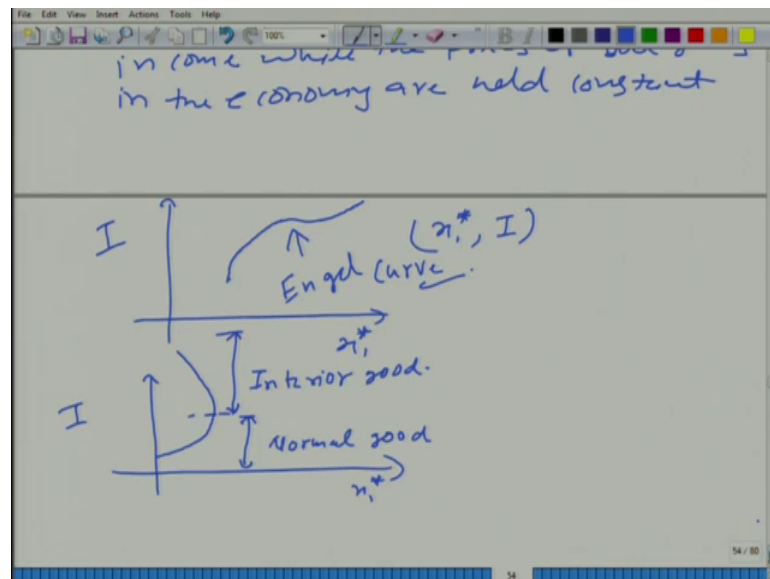 File Edit View Insert Actions Tools Help
100%
B I
income while the
in the economy are held constant
I
(x₁*, I)
Engel Curve
x₁*
Inferior good.
I
Normal good
x₁*
54 / 80
54